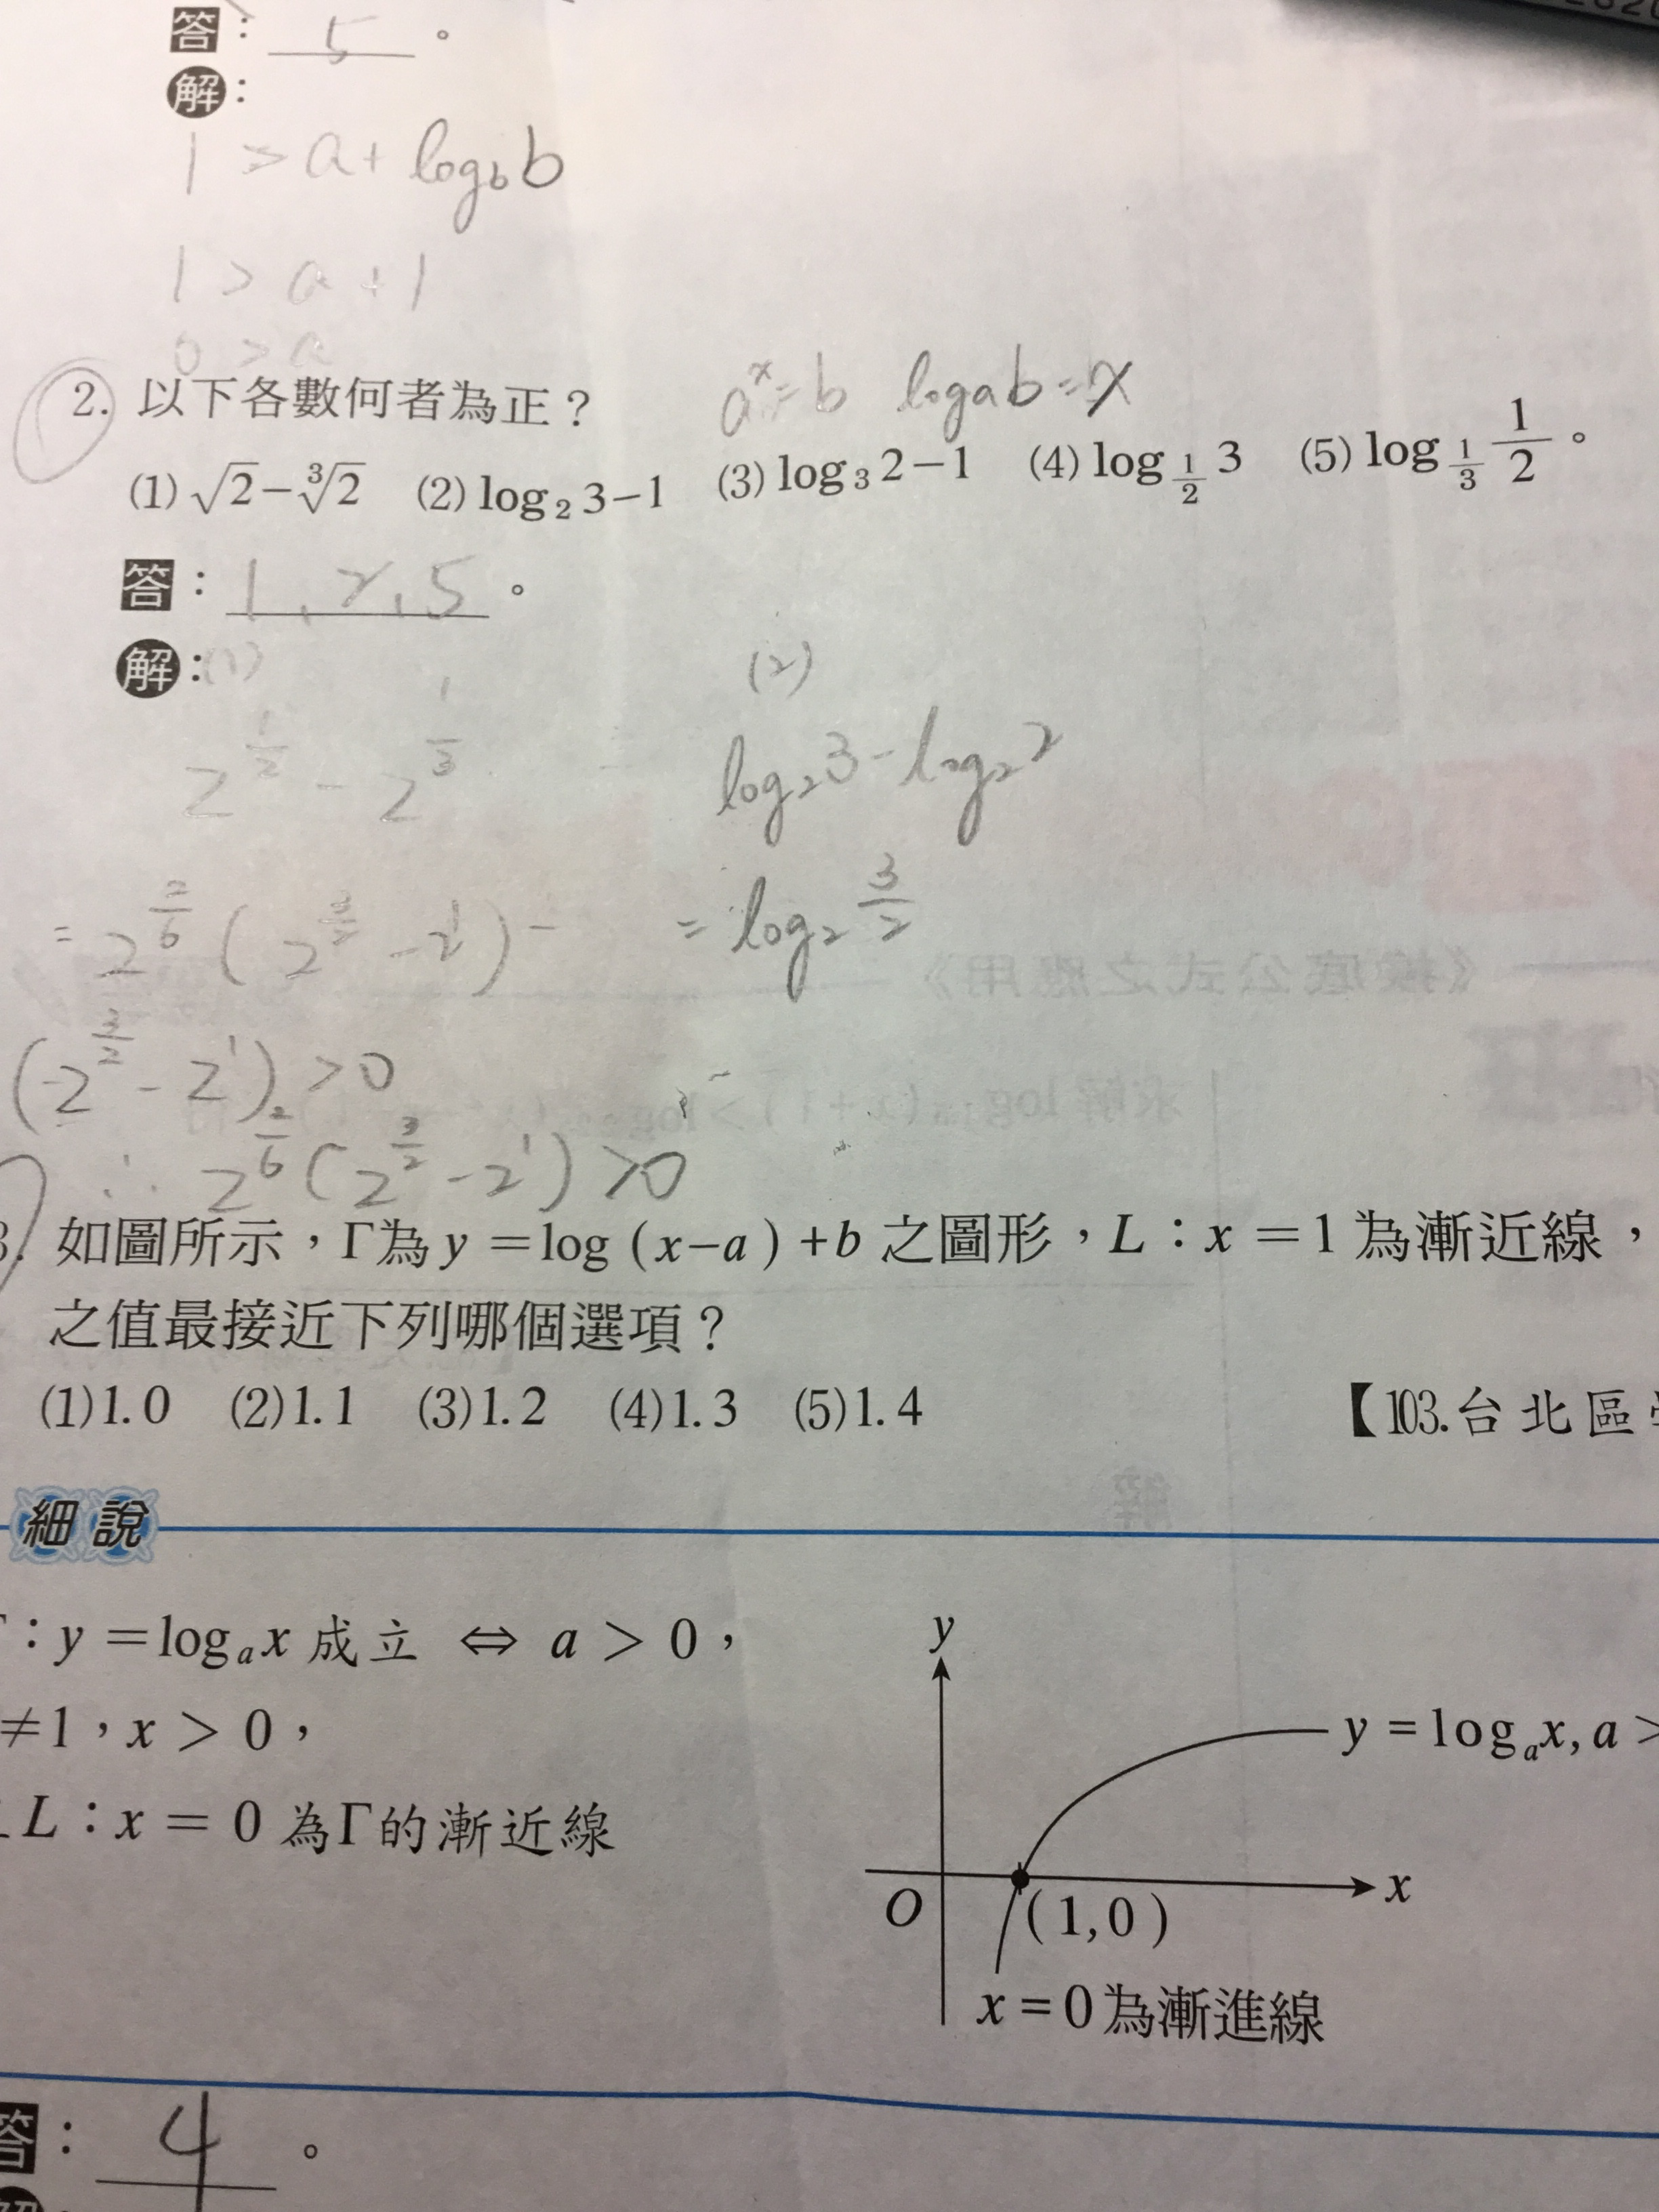 答：5。
解：
1 > a + log_b b
1 > a + 1
0 > a
2. 以下各數何者為正？ a^x = b log a b = x
(1) √2 − ∛2 (2) log_2 3 − 1 (3) log_3 2 − 1 (4) log_{1/2} 3 (5) log_{1/3} 1/2。
答：1、2、5。
解：(1) (2)
2^{1/2} − 2^{1/3} log_2 3 − log_2 2
= 2^{2/6} ( 2^{3/2} − 2^1 ) − = log_2 3/2
(2^{3/2} − 2^1) > 0
∴ 2^{2/6} (2^{3/2} − 2^1) > 0
3. 如圖所示，Γ為 y = log (x−a) + b 之圖形，L：x = 1 為漸近線，
之值最接近下列哪個選項？
(1) 1.0 (2) 1.1 (3) 1.2 (4) 1.3 (5) 1.4 【103.台北區
細說
：y = log_a x 成立 ⇔ a > 0，
≠1，x > 0，
L：x = 0 為Γ的漸近線
y
y = log_a x, a >
O
(1,0)
x
x = 0 為漸進線
答：4。